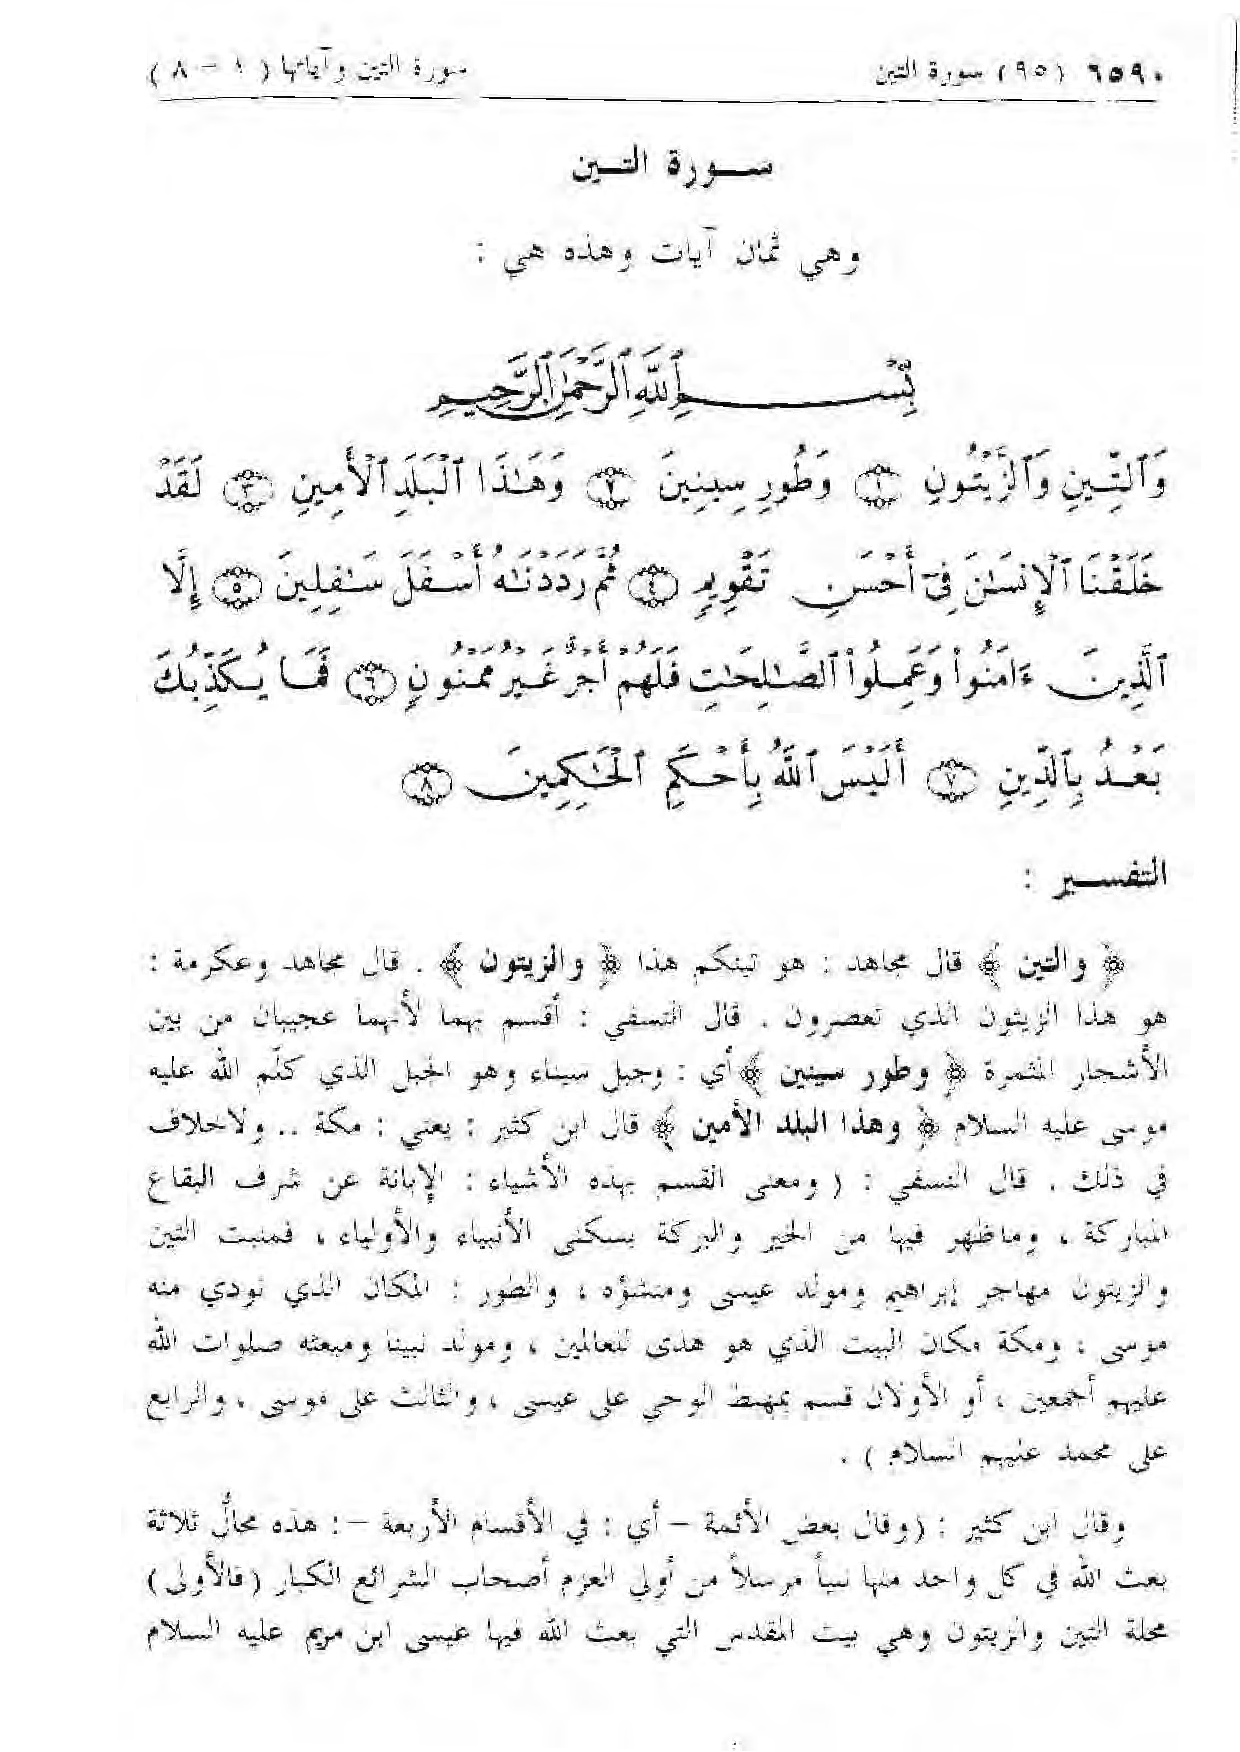 ٦٥٩٠ (٩٥) سورة التين سورة التين وآياتها (١ – ٨)
ســورة التــين
وهي ثمان آيات وهذه هي :
بِسْمِ ٱللَّهِ ٱلرَّحْمَٰنِ ٱلرَّحِيمِ
وَٱلتِّينِ وَٱلزَّيْتُونِ ١ وَطُورِ سِينِينَ ٢ وَهَٰذَا ٱلْبَلَدِ ٱلْأَمِينِ ٣ لَقَدْ
خَلَقْنَا ٱلْإِنسَٰنَ فِىٓ أَحْسَنِ تَقْوِيمٍ ٤ ثُمَّ رَدَدْنَٰهُ أَسْفَلَ سَٰفِلِينَ ٥ إِلَّا
ٱلَّذِينَ ءَامَنُوا۟ وَعَمِلُوا۟ ٱلصَّٰلِحَٰتِ فَلَهُمْ أَجْرٌ غَيْرُ مَمْنُونٍ ٦ فَمَا يُكَذِّبُكَ
بَعْدُ بِٱلدِّينِ ٧ أَلَيْسَ ٱللَّهُ بِأَحْكَمِ ٱلْحَٰكِمِينَ ٨
التفســير :
﴿ والتين ﴾ قال مجاهد : هو تينكم هذا ﴿ والزيتون ﴾ . قال مجاهد وعكرمة :
هو هذا الزيتون الذي تعصرون . قال النسفي : أقسم بهما لأنهما عجيبان من بين
الأشجار المثمرة ﴿ وطور سينين ﴾ أي : وجبل سيناء وهو الجبل الذي كلّم الله عليه
موسى عليه السلام ﴿ وهذا البلد الأمين ﴾ قال ابن كثير : يعني : مكة .. ولاخلاف
في ذلك . قال النسفي : ( ومعنى القسم بهذه الأشياء : الإبانة عن شرف البقاع
المباركة ، وماظهر فيها من الخير والبركة بسكنى الأنبياء والأولياء ، فمنبت التين
والزيتون مهاجر إبراهيم ومولد عيسى ومنشؤه ، والطور : المكان الذي نودي منه
موسى ؛ ومكة مكان البيت الذي هو هدى للعالمين ، ومولد نبينا ومبعثه صلوات الله
عليهم أجمعين ، أو الأولان قسم بمهبط الوحي على عيسى ، والثالث على موسى ، والرابع
على محمد عليهم السلام ) .
وقال ابن كثير : (وقال بعض الأئمة – أي : في الأقسام الأربعة –: هذه محالُّ ثلاثة
بعث الله في كل واحد منها نبياً مرسلاً من أولي العزم أصحاب الشرائع الكبار (فالأولى)
محلة التين والزيتون وهي بيت المقدس التي بعث الله فيها عيسى ابن مريم عليه السلام